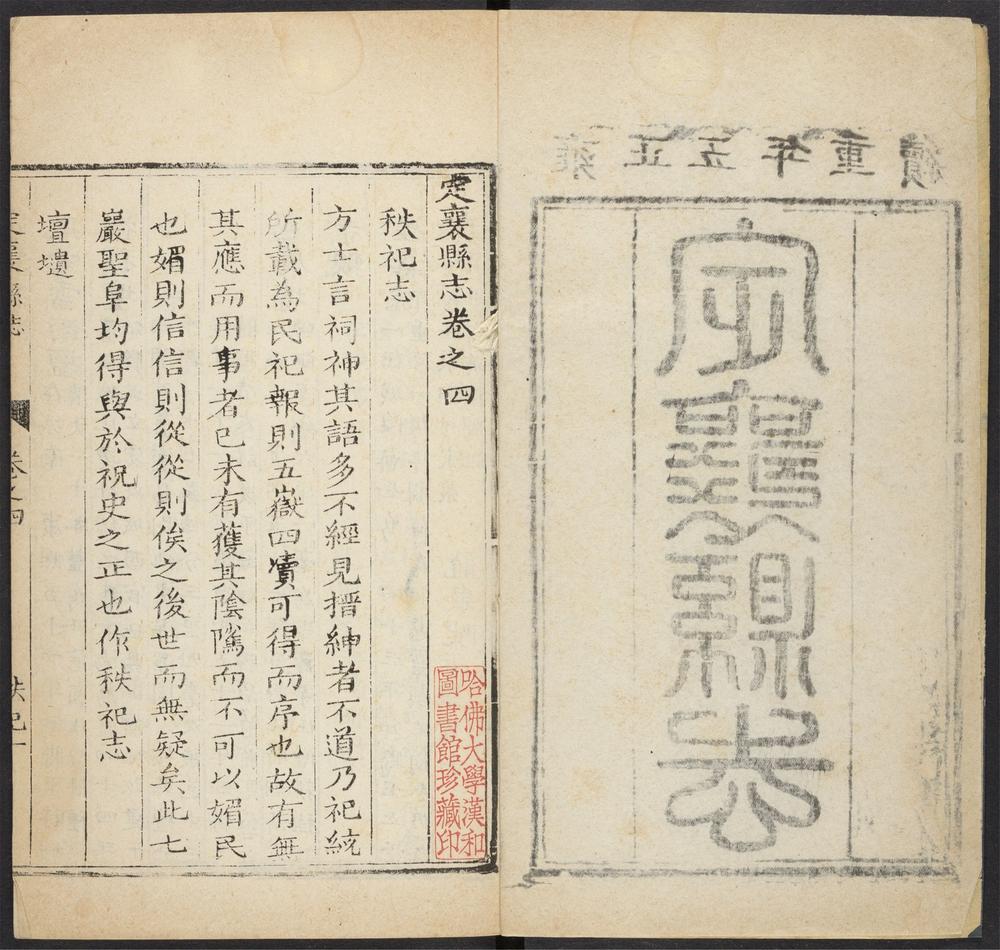 雍正五年重續
定襄縣志
定襄縣志卷之四
哈佛大學漢和
圖書館珍藏印
秩祀志
方士言祠神其語多不經見搢紳者不道乃祀統
所載為民祀報則五嶽四瀆可得而序也故有無
其應而用事者已未有獲其陰隲而不可以媚民
也媚則信信則從從則俟之後世而無疑矣此七
巖聖阜均得與於祝史之正也作秩祀志
壇壝
定襄縣志 卷之四 秩祀一